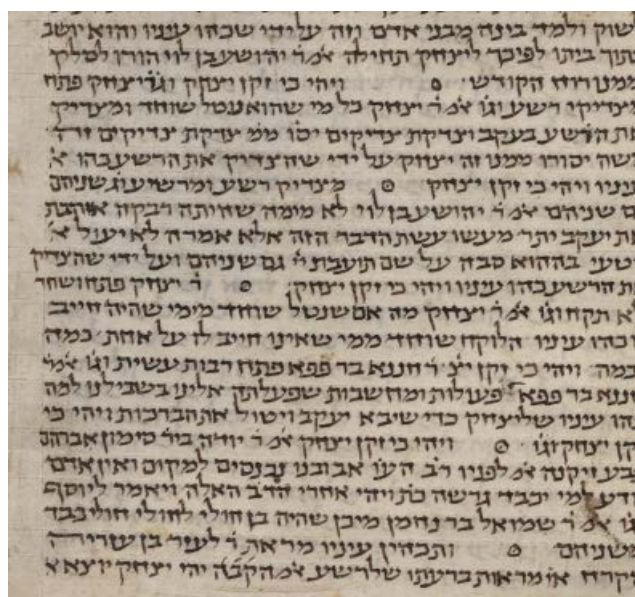 שוק ולמד בינה מבני אדם וזה על ידי שכהו עיניו והוא יושב
תוך ביתו לפיכך ליצחק תחילה א׳מ׳ ר׳ יהושע בן לוי הורו לסלק
ממנו רוח הקודש · ויהי כי זקן יצחק וגו׳ ר׳ יצחק פתח
מצדיקי רשע וגו׳ א׳מ׳ ר׳ יצחק כל מי שהוא נטל שוחד ומצדיק
את הרשע בעקב וצדקת צדיקים יס׳ו׳ ממ׳ צדקת צדיקים זו
משה יסורו ממנו זה יצחק על ידי שהצדיק את הרשע בהו א׳
עיניו ויהי כי זקן יצחק מצדיק רשע ומרשיע וג׳ שניהם
גם שניהם א׳מ׳ ר׳ יהושע בן לוי לא מימה שהיתה רבקה אוהבת
את יעקב יתר מעשו עשת הדבר הזה אלא אמרה לא יעול א׳
בההוא סבה על שם תועבת יי׳ גם שניהם ועל ידי שהצדיק
את הרשע בהו עיניו ויהי כי זקן יצחק · ר׳ יצחק פתח ושחד
לא תקח וגו׳ א׳מ׳ ר׳ יצחק מה אם שנטל שוחד מימי שהיה חייב
וכהו עיניו הלוקח שוחד ממי שאינו חייב לו על אחת כמה
וכמה · ויהי כי זקן יצ׳ ר׳ חננא בר פפא פתח רבות עשית וגו׳ א׳מ׳ ר׳
חננא בר פפא פעולות ומחשבות שפעלתה אלינו בשבילנו למה
כהו עיניו שליצחק כדי שיבא יעקב ויטול את הברכות ויהי כי
זקן יצחק וגו׳ · ויהי כי זקן יצחק א׳מ׳ ר׳ יודה ביר סימון אברהם
תבע זיקנה א׳מ׳ לפניו רב׳ הע׳ו׳ אב ובנו נכנסים למקום ואין אדם
יודע למי יכבד
וג׳ו׳ א׳מ׳ ר׳ שמואל בר נחמן מיכן שהיה בן חולי לחולי חולי כבד
משניהם · ותכהין עיניו מראת ר׳ לעזר בן עזריה
מראות ברעתו שלרשע א׳מ׳ הקב׳ה׳ יהי יצחק יוצא א׳